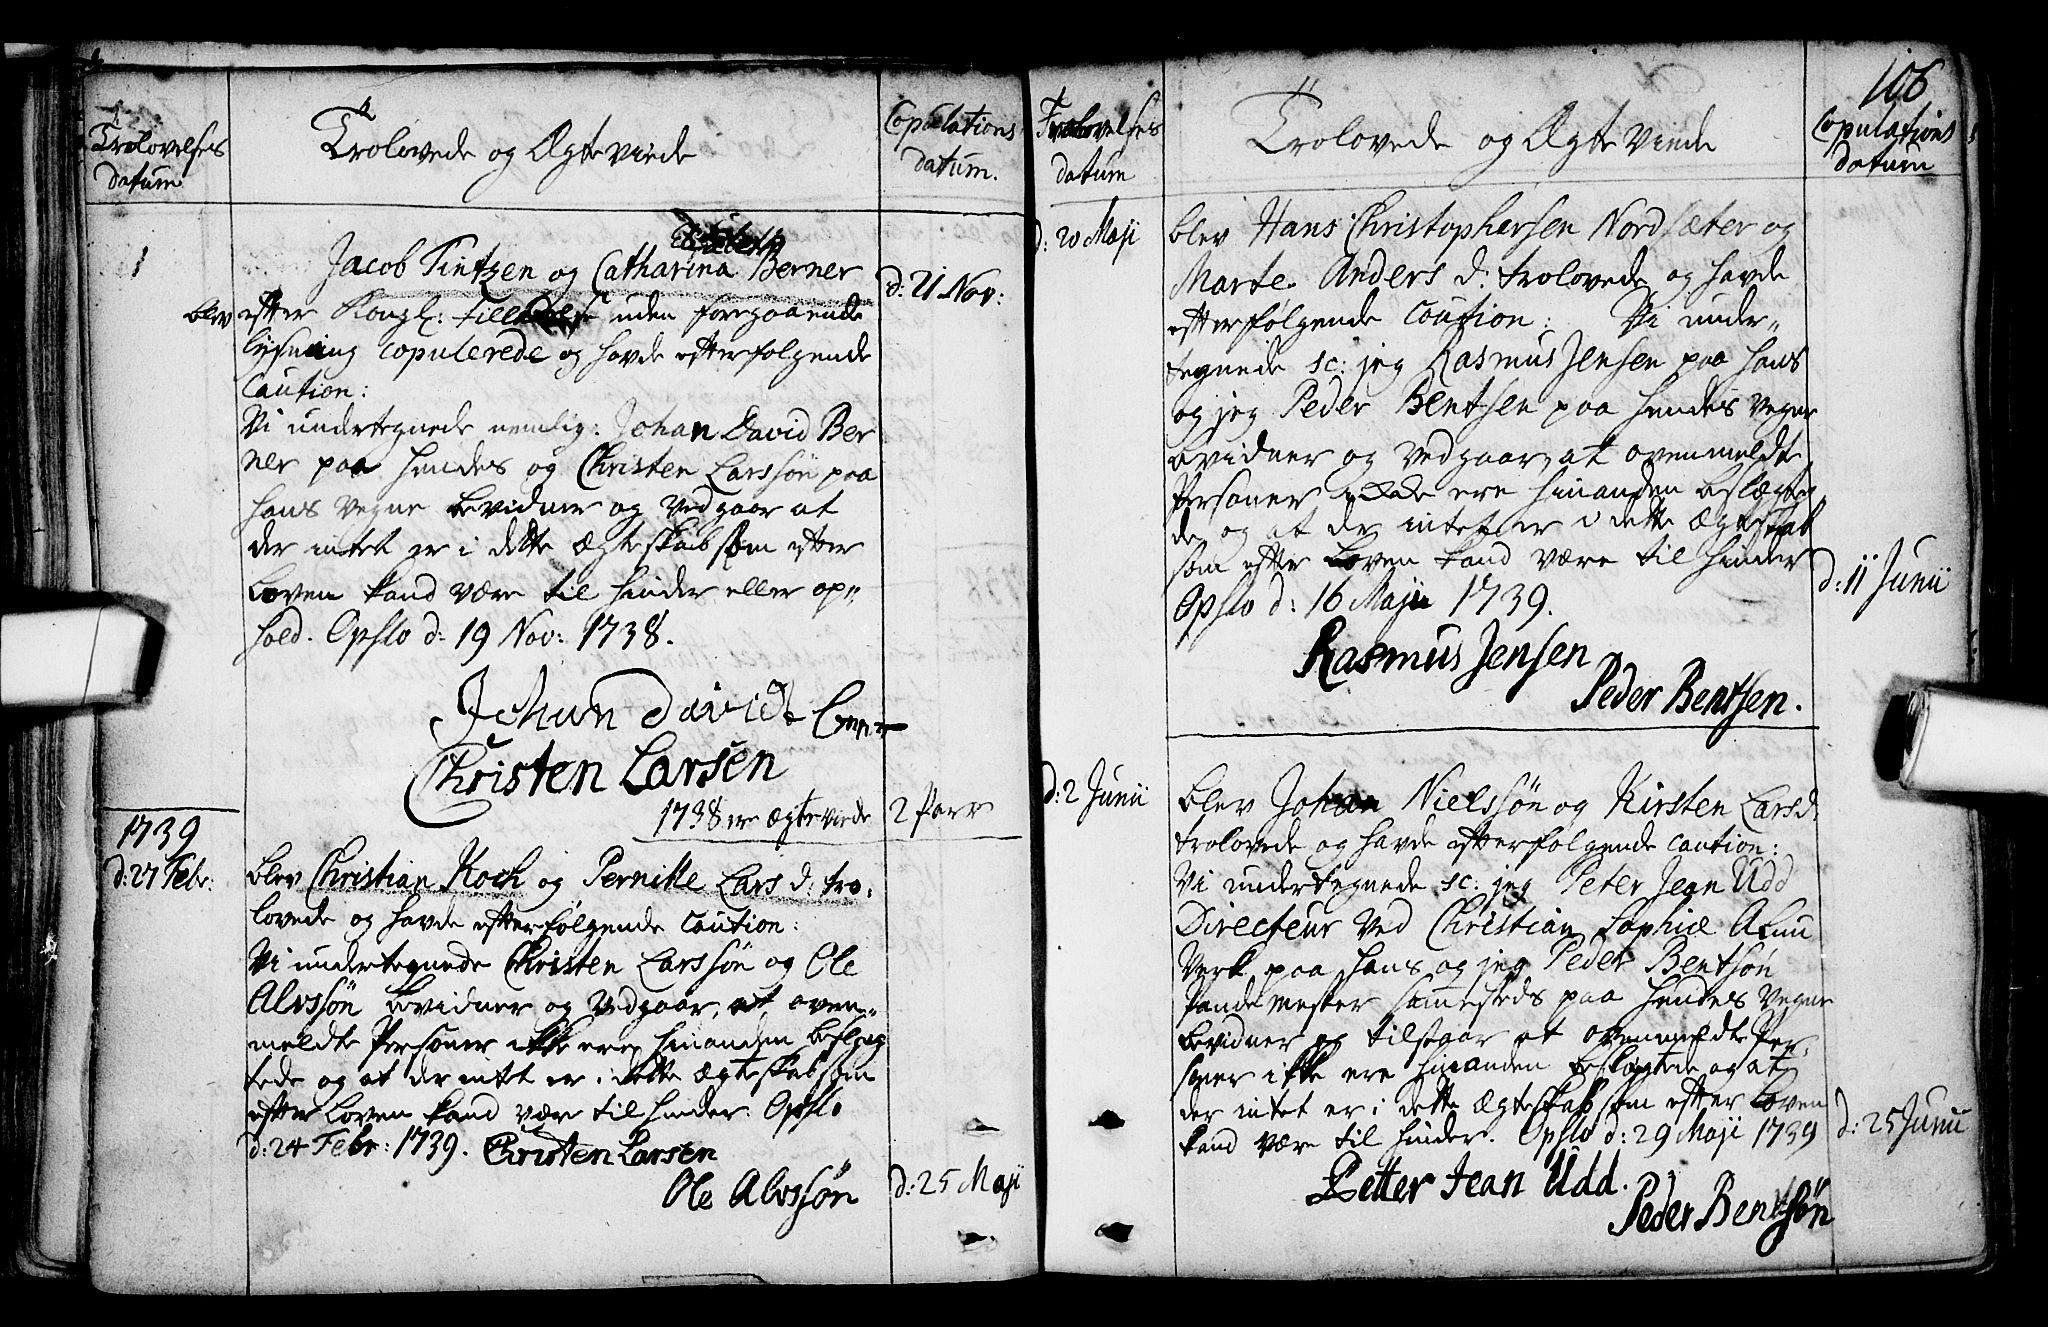 Trolovelses
datum
Trolovede og Ægte Viede
Copulations
datum.
1
Jacob Tintzen og Catharina Berner
d: 21 Nov:
blev efter Kongl: uden foregaaende
lysning copulerede og havde efterfølgende
Caution:
Vi undertegnede nemlig: Johan David Ber
ner paa hendes og Christen Larssøn paa
hans Vegne bevidner og Vedgaar at
der intet er i dette Ægteskab som efter
Loven kand være til hinder eller op„
hold. Opslo d: 19 Nov: 1738.
Johan David
Christen Larsen
1738 ere ægteviede 2 Parr
1739
d: 27 Febr:
blev Christian Koch og Pernille Lars d: tro„
lovede og havde efterfølgende Caution:
Vi undertegnede Christen Larssøn og Ole
Alvssøn bevidner og Vedgaar, at oven„
meldte Persohner ikke ere hinanden beslæg
tede og at der intet er i dette Ægteskab som
efter Loven kand være til hinder. Opslo
d: 24 Febr: 1739. Christen Larsen
Ole Alvssøn
d: 25 Maji
106
Trolovelses
datum
Trolovede og Ægte Viede
Copulations
datum
d: 20 Maji
blev Hans Christophersen Nordsæter og
Marte Anders d: trolovede og havde
efterfølgende Caution: Vi under„
tegnede sc: jeg Rasmus Jensen paa hans
og jeg Peder Bentsen paa hendes Vegne
bevidner og Vedgaar, at ovenmeldte
Personer ikke ere hinanden beslægte
de og at der intet er i dette Ægteskab
som efter Loven kand være til hinder
Opslo d: 16 Maji 1739.
d: 11 Junii
Rasmus Jensen
Peder Bentsen.
d: 2 Junii
blev Johan Nielssøn og Kirsten Lars d:
trolovede og havde efterfølgende Caution:
Vi undertegnede sc: jeg Peter Jean Udd
Directeur Ved Christian Sophiæ Alun
Verk paa hans og jeg Peder Bentsøn
Pandemester samesteds paa hendes Vegne
bevidner og tilstaar at ovenmeldte Per„
soner ikke ere hinanden beslægtede og at
der intet er i dette Ægteskab som efter Loven
kand være til hinder. Opslo d: 29 Maji 1739
d: 25 Junii
Petter Jean Udd.
Peder Bentsøn